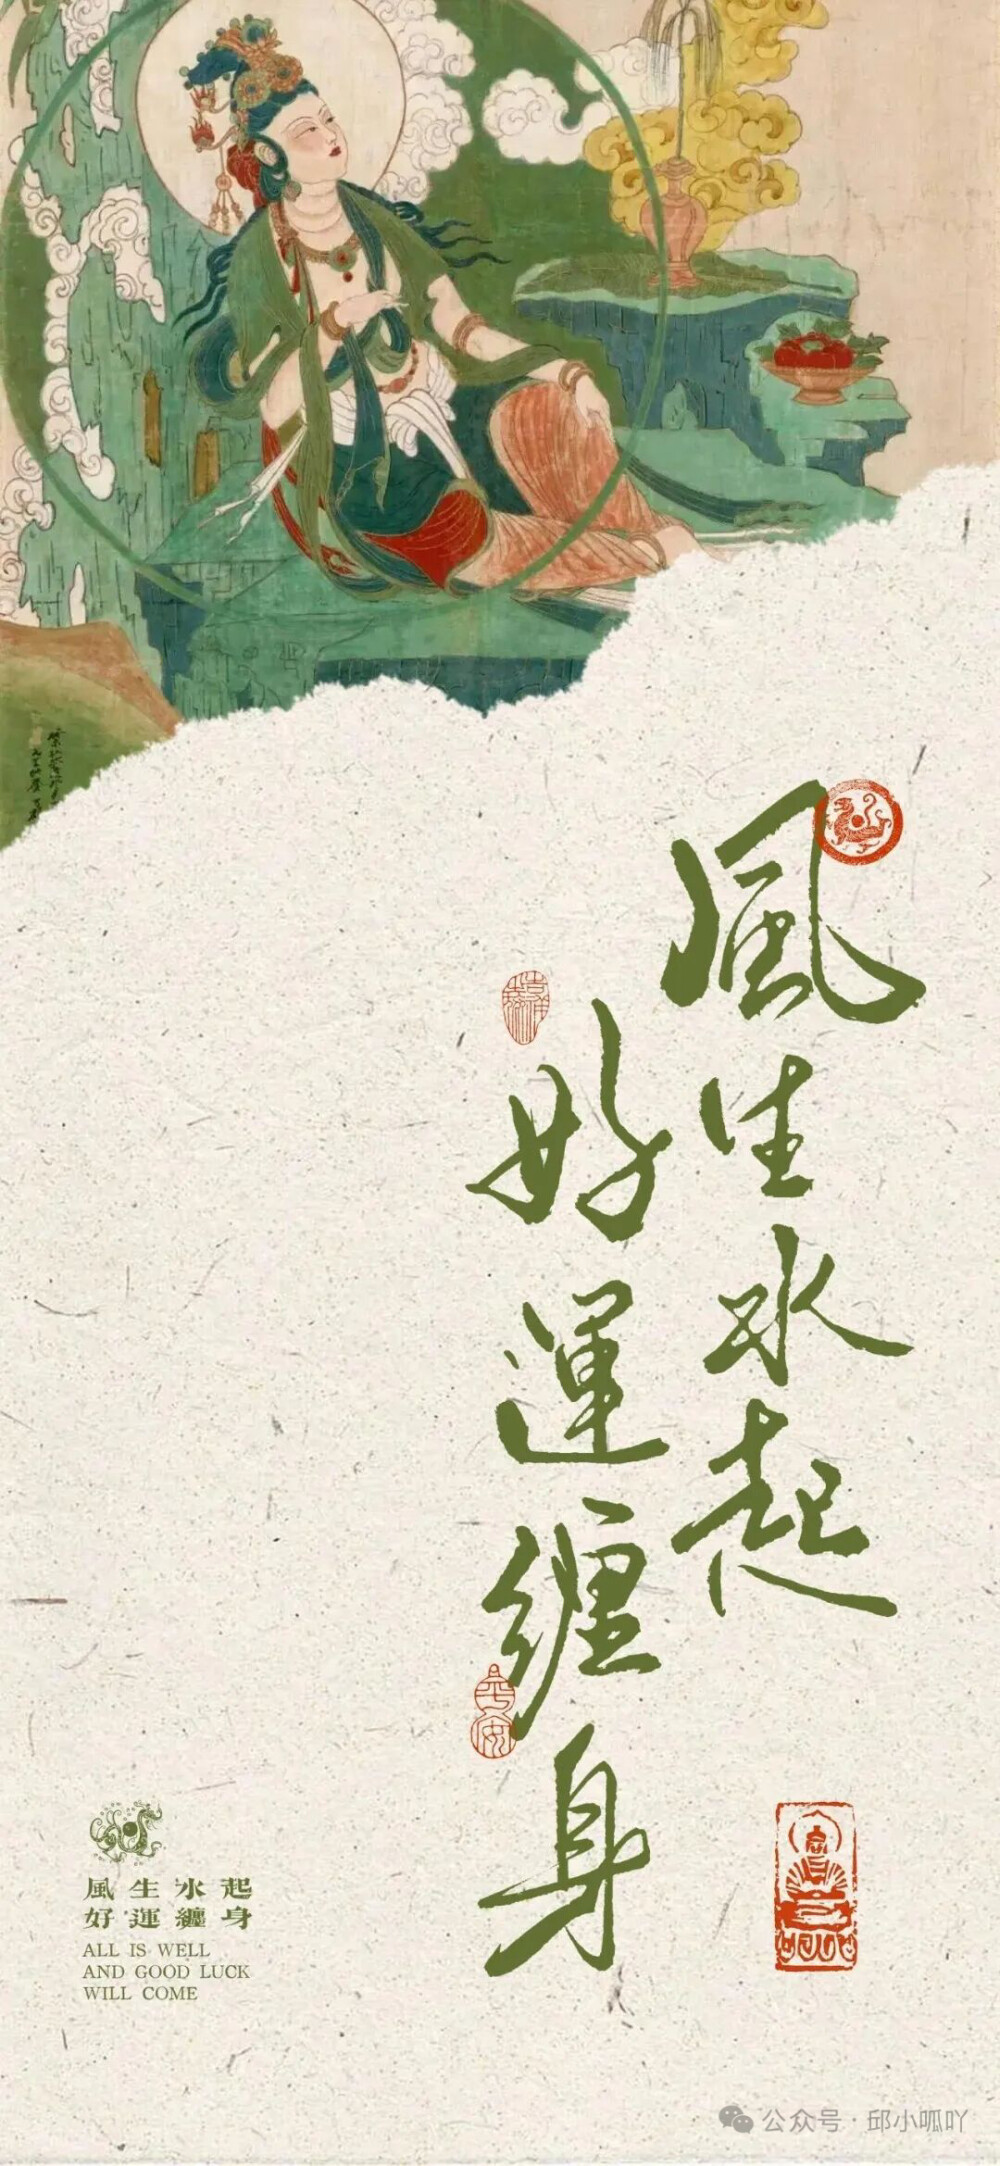 風生水起
好運纏身
平安
風生水起
好運纏身
ALL IS WELL
AND GOOD LUCK
WILL COME
公众号·邱小呱吖